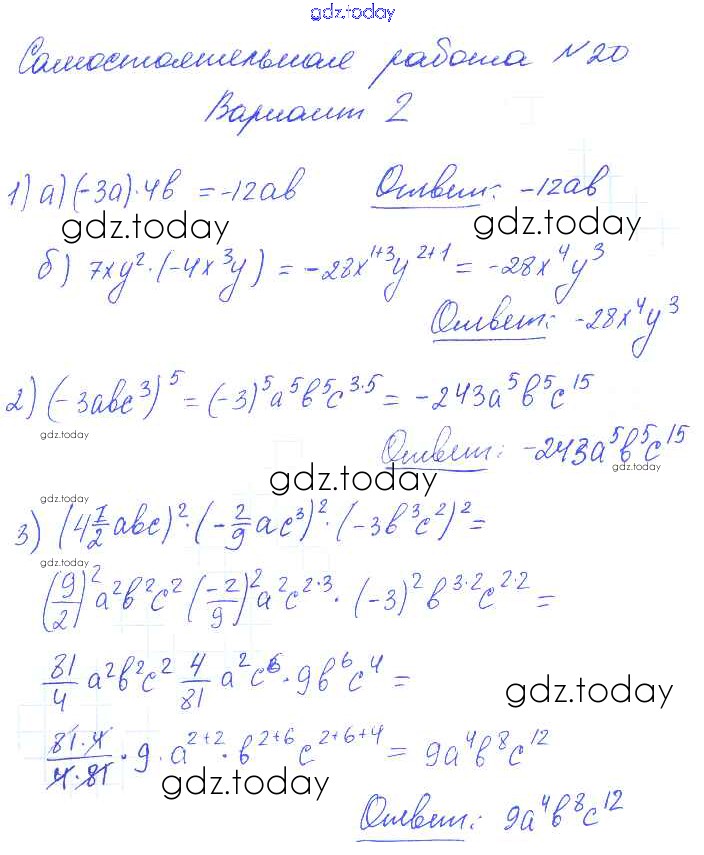 gdz.today
Самостоятельная работа №20
Вариант 2
1) а) (-3а)·4в = -12ав   Ответ: -12ав
gdz.today   gdz.today
б) 7xy²·(-4x³y) = -28x¹⁺³y²⁺¹ = -28x⁴y³
Ответ: -28x⁴y³
gdz.today
2) (-3авс³)⁵ = (-3)⁵а⁵в⁵с³·⁵ = -243а⁵в⁵с¹⁵
gdz.today
Ответ: -243а⁵в⁵с¹⁵
gdz.today
gdz.today
gdz.today
3) (4 1/2 авс)²·(-2/9 ас³)²·(-3в³с²)² =
gdz.today
(9/2)²а²в²с² (-2/9)²а²с²·³·(-3)²в³·²с²·² =
81/4 а²в²с² 4/81 а²с⁶·9в⁶с⁴ =
gdz.today
81·4/4·81·9·а²⁺²·в²⁺⁶с²⁺⁶⁺⁴ = 9а⁴в⁸с¹²
gdz.today
Ответ: 9а⁴в⁸с¹²
gdz.today